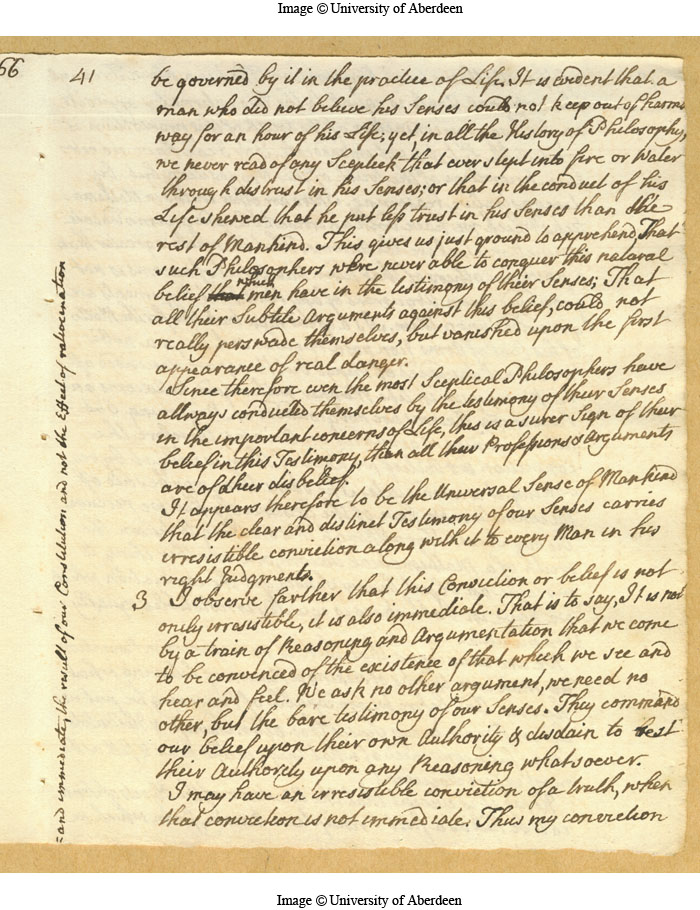 Image © University of Aberdeen
66
41
be governed by it in the practice of Life. It is evident that a
man who did not believe his Senses could not keep out of harms
way for an hour of his Life; yet, in all the History of Philosophy,
we never read of any Sceptick that ever stept into fire or water
through distrust in his Senses; or that in the conduct of his
Life shewed that he put less trust in his Senses than the
rest of Mankind. This gives us just ground to apprehend, That
such Philosophers were never able to conquer this natural
which
belief that men have in the testimony of their Senses; That
all their Subtile Arguments against this belief, could not
really perswade themselves, but vanished upon the first
appearance of real danger.
Since therefore even the most Sceptical Philosophers have
allways conducted themselves by the testimony of their Senses
in the important concerns of Life, this is a surer Sign of their
belief in this Testimony, than all their Professions & Arguments
are of their disbelief.
It appears therefore to be the Universal Sense of Mankind
that the clear and distinct Testimony of our Senses carries
irresistible conviction along with it to every Man in his
right Judgments.
3 I observe farther that this Conviction or belief is not
only irresistible, it is also immediate. That is to say, It is not
by a train of Reasoning and Argumentation that we come
to be convinced of the existence of that which we see and
hear and feel. We ask no other argument, we need no
other, but the bare testimony of our Senses. They command
our belief upon their own Authority & disdain to rest
their Authority upon any Reasoning whatsoever.
I may have an irresistible conviction of a truth, when
that conviction is not immediate. Thus my conviction
=and immediate, the result of our Constitution and not the Effect of ratiocination
Image © University of Aberdeen